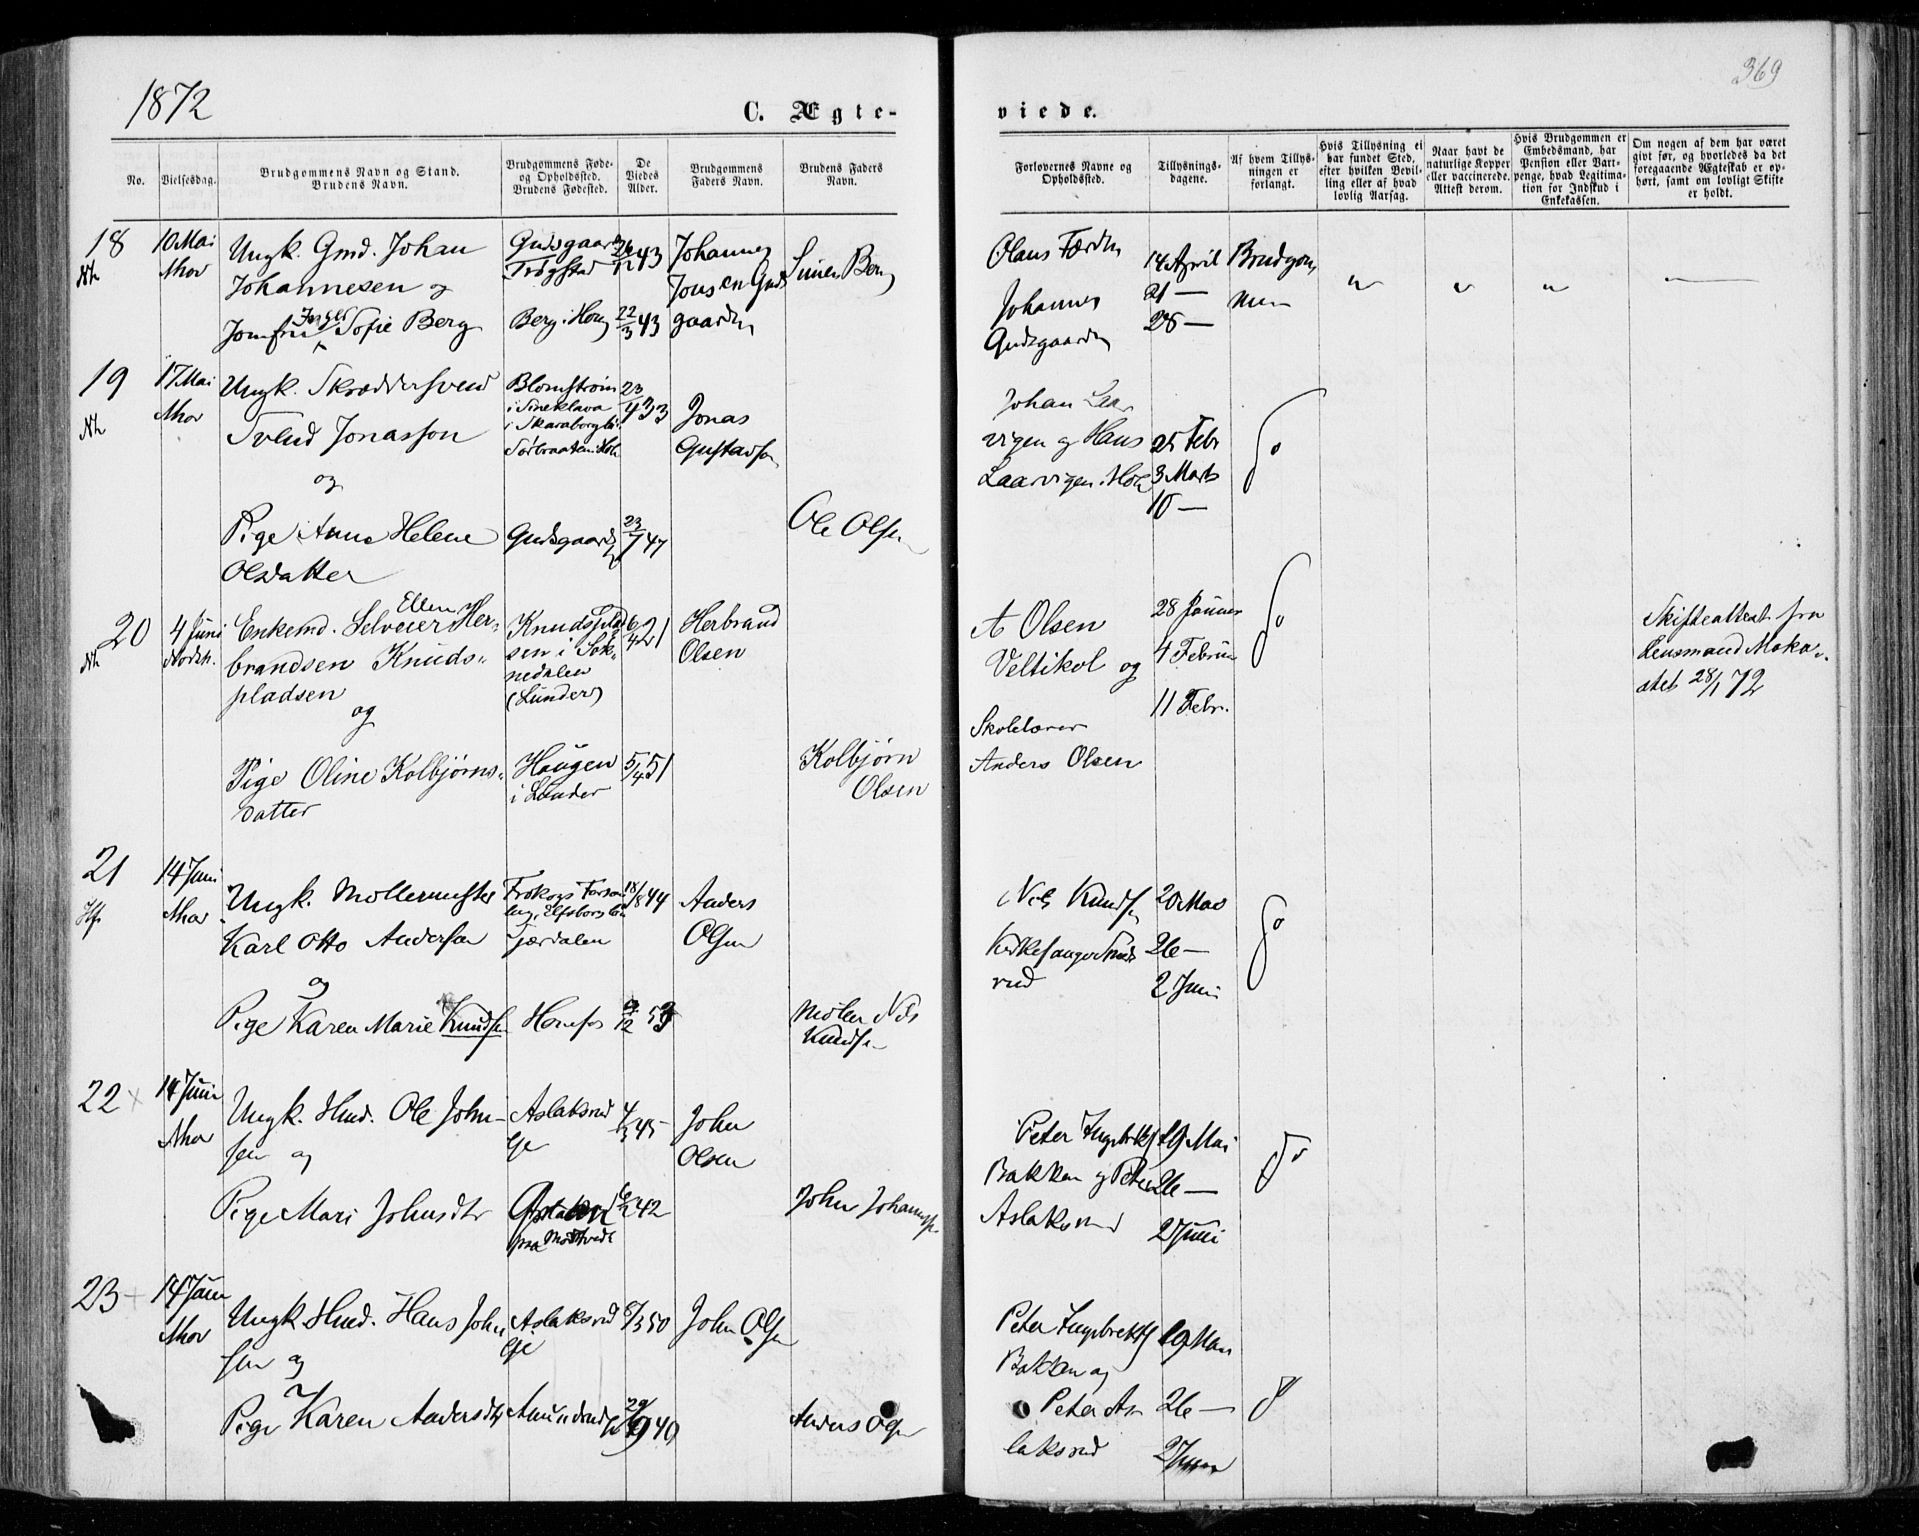 1872
C. Ægte-
viede.
369
No.
Vielsesdag.
Brudgommens Navn og Stand.
Brudens Navn.
Brudgommens Føde-
og Opholdssted.
Brudens Fødested.
De
Viedes
Alder.
Brudgommens
Faders Navn.
Brudens Faders
Navn.
Forlovernes Navne og
Opholdssted.
Tillysnings-
dagene.
Af hvem Tillys-
ningen er
forlangt.
Hvis Tillysning ei
har fundet Sted,
efter hvilken Bevil-
ling eller af hvad
lovlig Aarsag.
Naar havt de
naturlige Kopper
eller vaccinerede.
Attest derom.
Hvis Brudgommen er
Embedsmand, har
Pension eller Vart-
penge, hvad Legitima-
tion for Indskud i
Enkekassen.
Om nogen af dem har været
givt før, og hvorledes da det
foregaaende Ægteskab er op-
hørt, samt om lovligt Skifte
er holdt.
18
10 Mai
Nhov
Ungk. Gmd. Johan
Johannesen og
Jomfru Inger Sofie Berg
Gudsgaarden
Trøgstad
Berg i Hou
26/12 43
22/3 43
Johannes
Jonsen Guds
gaarden
Simen Berg
Olaus Færden
Johannes
Gudsgaarden
14 April
21 —
28 —
Brudgom
men
19
17 Mai
Nhov
Ungk. Skræddersvend
Svend Jonasson
og
Pige Anne Helene
Olsdatter
Blomstrøm
i Sineklava
i Skaraborg
Sørbraaten i Hole
Gudsgaarden
23/4 33
23/7 47
Jonas
Gustavson
Ole Olsen
Johan Laar
vigen og Hans
Laarvigen i Hole
25 Febr
3 Marts
10 —
do
20
4 Juni
Nordh.
Enkemd. Selveier Ellen Her-
brandsen Knuds-
pladsen
og
Pige Oline Kolbjørns-
datter
Knudsplad
sen i Sok-
nedalen
(Lunder)
Haugen
i Lunder
6/4 21
5/4 51
Herbrand
Olsen
Kolbjørn
Olsen
A Olsen
Veltikol og
Skolelærer
Anders Olsen
28 Januar
4 Februar
11 Febr.
do
Skifteattest fra
Lensmand Moka-
stet 28/1 72
21
14 Juni
Nhov
Ungk. Møllermester
Karl Otto Anderson
og
Pige Karen Marie Knudsen
Tjærdalen
Hønefos
18/8 44
9/12 53
Anders
Olsen
Møller Nils
Knudsen
Nils Knudsen
Kirkesanger Strands
rud
20 Mai
26 —
2 Juni
do
22
14 Juni
Nhov
Ungk. Hmd. Ole John-
sen og
Pige Mari Johnsdtr
Aslaksrud
Eje
4/3 45
6/2 42
John
Olsen
John Johannesen
Peter Ingebrets
Bakken og Peter
Aslaksrud
19 Mai
26 —
2 Juni
do
23
14 Juni
Nhov
Ungk Hmd. Hans John
sen og
Pige Karen Andersdtr
Aslaksrud
Eje
8/3 50
John Olsen
Anders Olsen
Peter Ingebrets
Bakken og
Peter As
laksrud
19 Mai
26 —
2 Juni
do